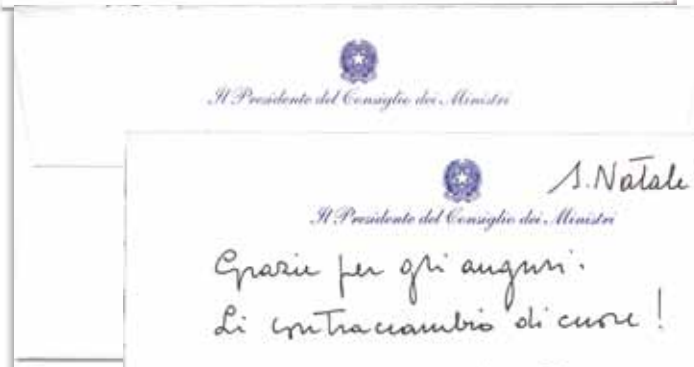 Il Presidente del Consiglio dei Ministri
S. Natale
Il Presidente del Consiglio dei Ministri
Grazie per gli auguri.
Li contraccambio di cuore!